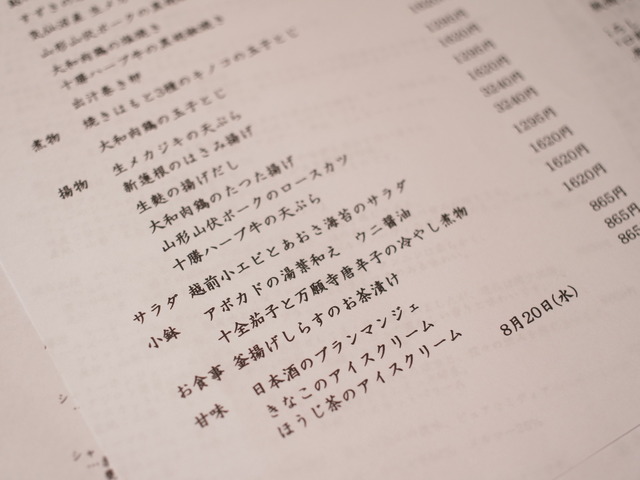 気仙沼産 生メ
山形山伏ポークの黒胡椒焼き
大和肉鶏の塩焼き
十勝ハーブ牛の黒胡椒焼き
出汁巻き卵
煮物 焼きはもと3種のキノコの玉子とじ
大和肉鶏の玉子とじ
揚物 生メカジキの天ぷら
新蓮根のはさみ揚げ
生麩の揚げだし
大和肉鶏のたつた揚げ
山形山伏ポークのロースカツ
十勝ハーブ牛の天ぷら
サラダ 越前小エビとあおさ海苔のサラダ
小鉢 アボカドの湯葉和え ウニ醤油
十全茄子と万願寺唐辛子の冷やし煮物
お食事 釜揚げしらすのお茶漬け
甘味 日本酒のブランマンジェ
きなこのアイスクリーム
ほうじ茶のアイスクリーム
1620円
1295円
1620円
1295円
1620円
3240円
3240円
1295円
1620円
1620円
1620円
865円
865円
865
8月20日(水)